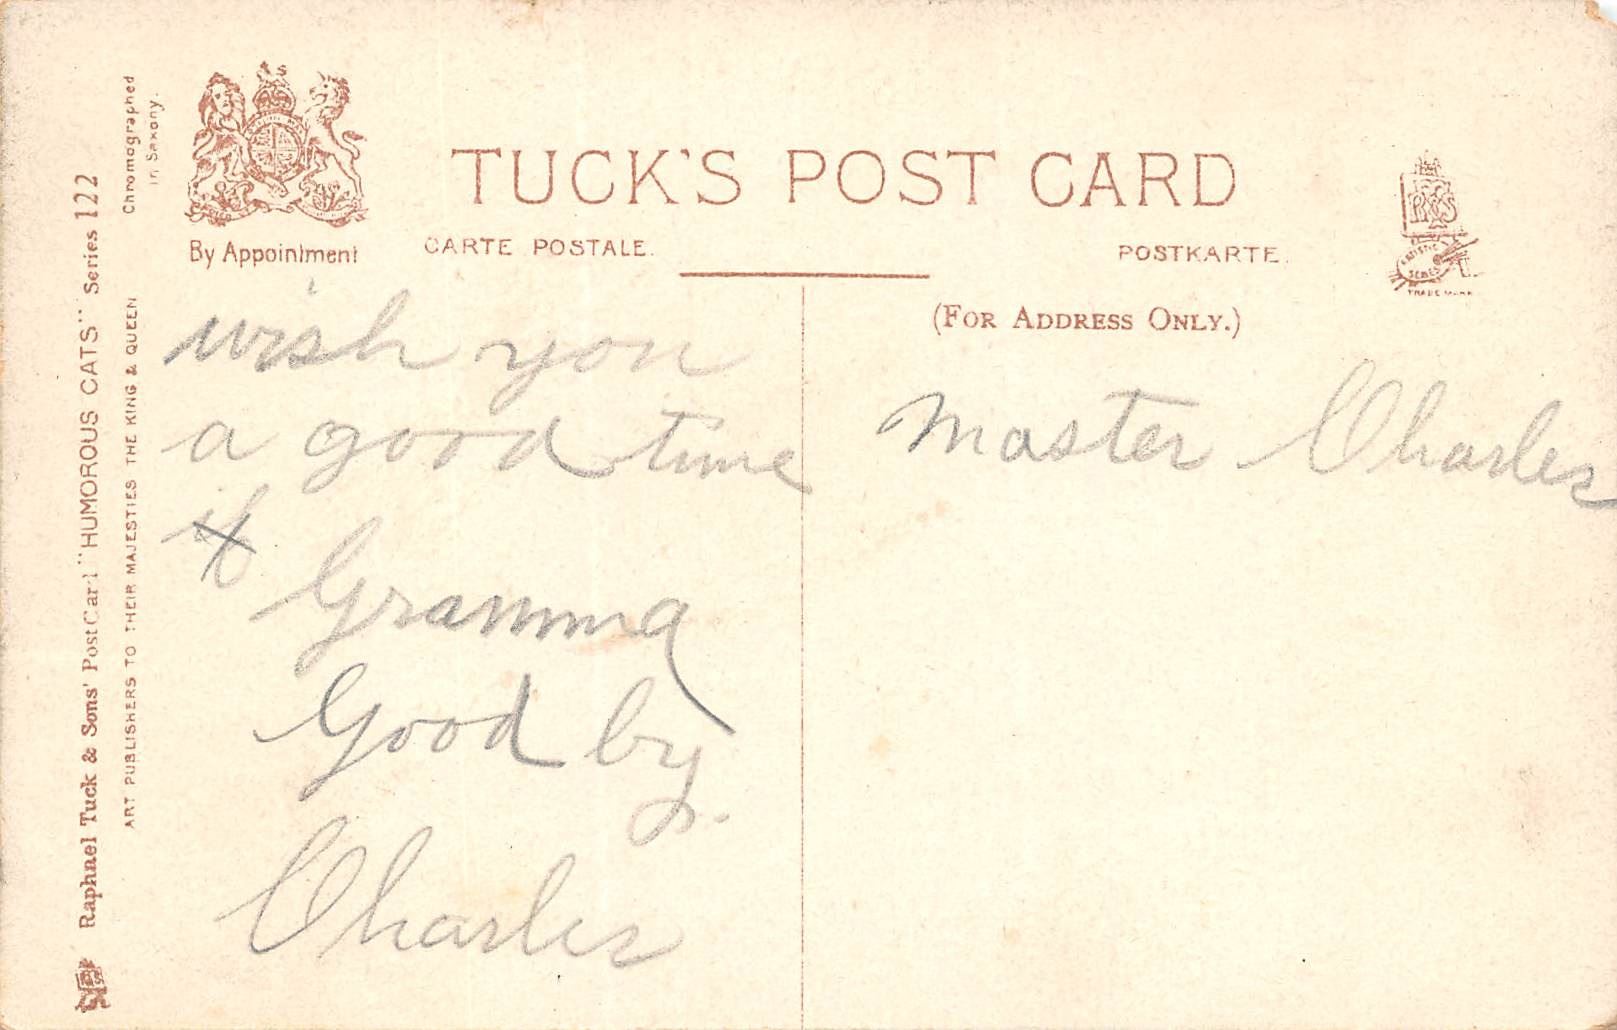 TUCK'S POST CARD
By Appointment
CARTE POSTALE.
POSTKARTE.
(FOR ADDRESS ONLY.)
ARTISTIC
SERIES
TRADE MARK
wish you
a good time
Gramma
Good by.
Charles
Master Charles
Raphael Tuck & Sons' Post Card "HUMOROUS CATS" Series 122
ART PUBLISHERS TO THEIR MAJESTIES THE KING & QUEEN
Chromographed
in Saxony.